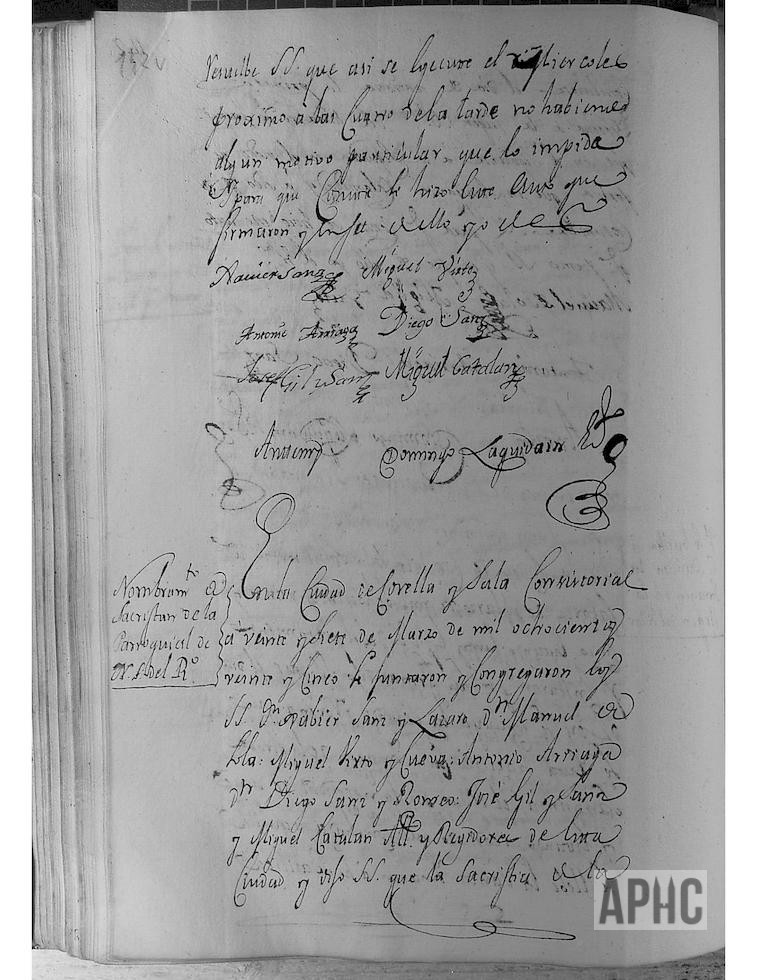 resuelbe SS. que asi se ejecute el Miercoles
proximo a las Cuatro de la tarde no habiendo
algun motivo particular que lo impida
para que Conste se hizo este Auto que
firmaron y en fee de ello yo el
Xavier Sanz Miguel Virto
Antonio Arriaga Diego Sanz
Josef Gil y Sanz Miguel Catalan
Antemi Domingo Laquidain
Nombramto de
Sacristan de la
Parroquial de
N. S. del Ro.
En la Ciudad de Corella y Sala Consistorial
a veinte y siete de Marzo de mil ochocientos
veinte y Cinco se juntaron y Congregaron los
SS. Dn. Xabier Sanz y Lazaro Dn. Manuel de
Luis Miguel Virto y Cueva: Antonio Arriaga
Dn. Diego Sanz y Romeo: José Gil y Sanz
y Miguel Catalan All. y Regidores de esta
Ciudad y dijo SS. que la Sacristia de la
APHC